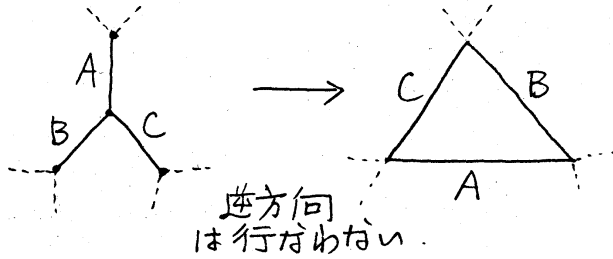 A
B
C
C
B
A
逆方向
は行なわない.